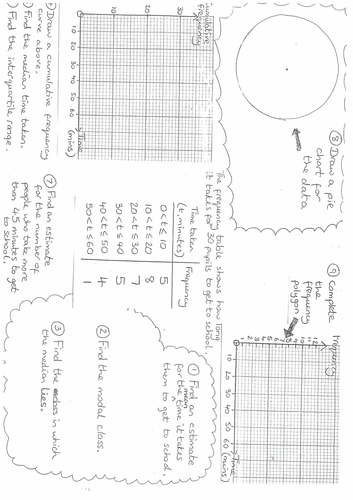 The frequency table shows how long
it takes for 30 pupils to get to school.
Time taken (t, minutes)
Frequency
0<t≤10 5
10<t≤20 8
20<t≤30 7
30<t≤40 5
40<t≤50 4
50<t≤60 1
① Find an estimate
for the mean time it takes
them to get to school.
② Find the modal class.
③ Find the class in which
the median lies.
Draw a cumulative frequency
curve above.
) Find the median time taken.
) Find the interquartile range.
Cumulative
frequency
10
20
30
0 10 20 30 40 50 60 (mins)
Time
⑦ Find an estimate
for the number of
people who take more
than 45 minutes to get
to school.
⑧ Draw a pie
chart for
the data
⑨ Complete
the
frequency
polygon
frequency
1 2 3 4 5 6 7 8 9 10 11 12
0 10 20 30 40 50 60 (mins)
Time